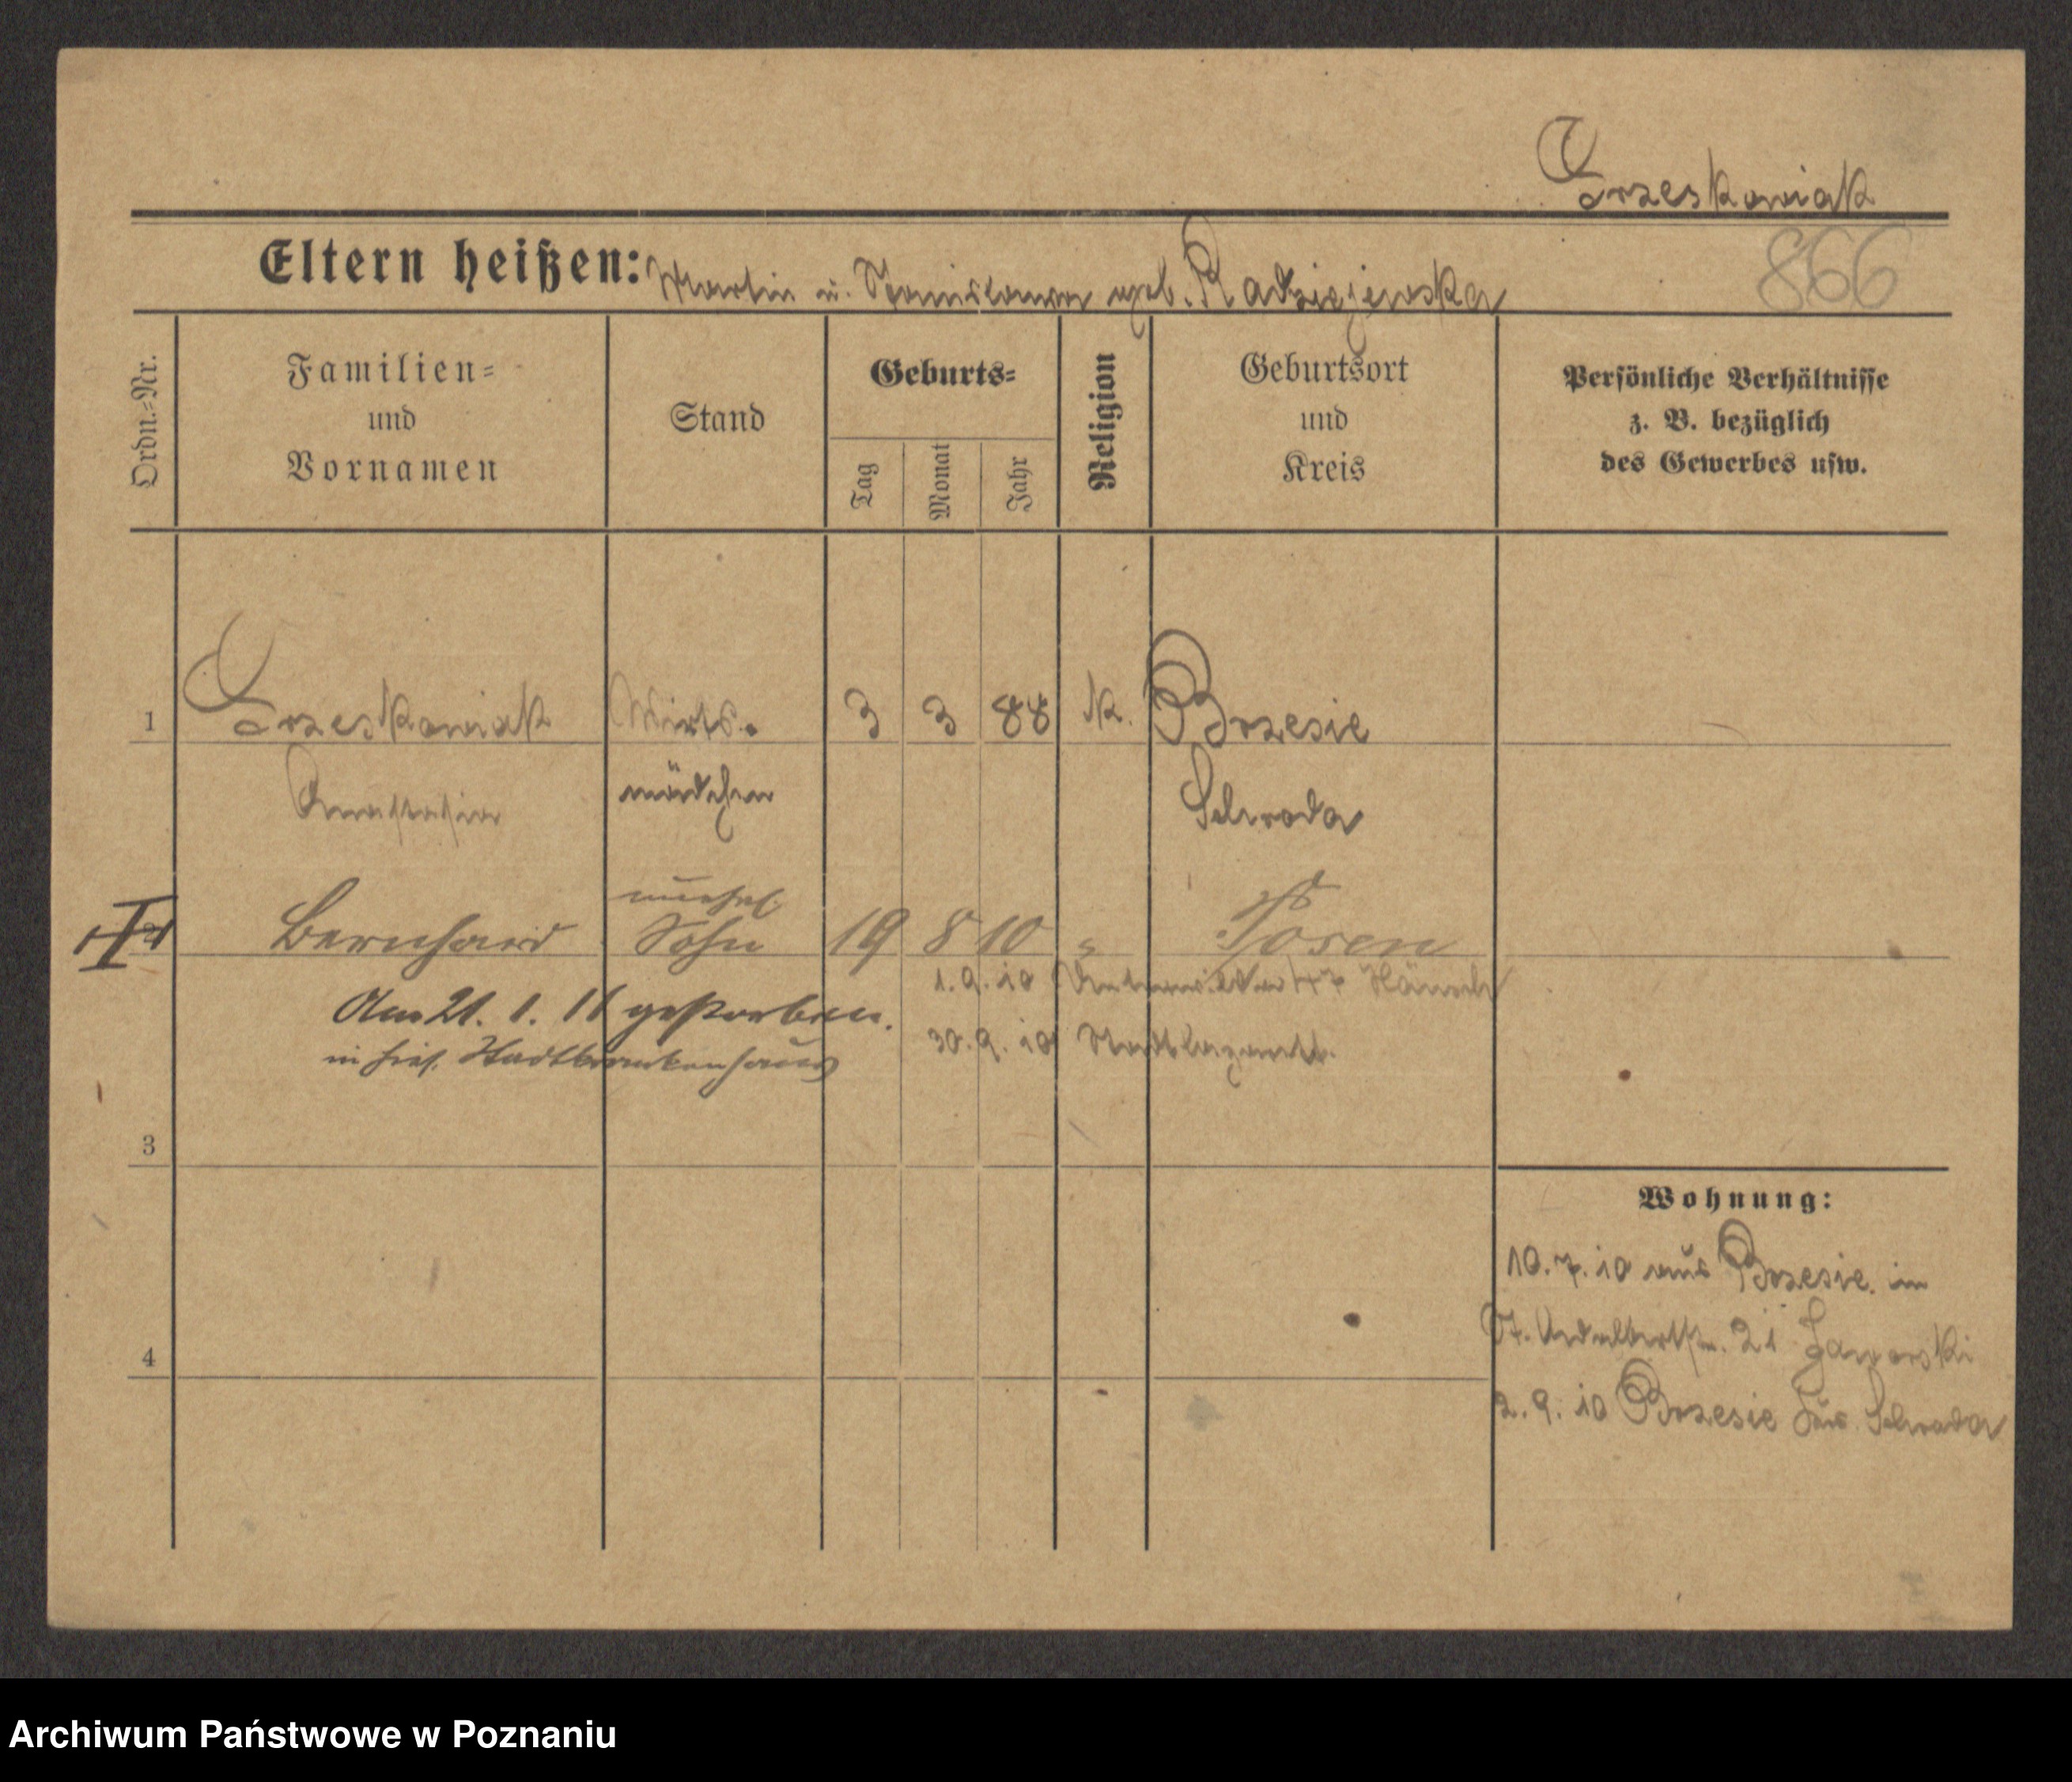 Grzeskowiak
Eltern heißen: Martin u. Stanislawa geb. Radziejewska
866
Ordn.-Nr.
Familien-
und
Vornamen
Stand
Geburts-
Tag
Monat
Jahr
Religion
Geburtsort
und
Kreis
Persönliche Verhältnisse
z. B. bezüglich
des Gewerbes usw.
1 Grzeskowiak Wirts- 3 3 88 k. Brzesie
Anastasia mädchen Schroda
unehel.
2 Bernhard Sohn 19 8 10 " Posen
1.9.10
Am 21. 1. 11 gestorben.
30.9.10 Stadtlazarett.
in hies. Stadtkrankenhaus
3
Wohnung:
10.7.10 aus Brzesie in
St. Adalbertstr. 21
4
2.9.10 Brzesie Krs. Schroda
Archiwum Państwowe w Poznaniu